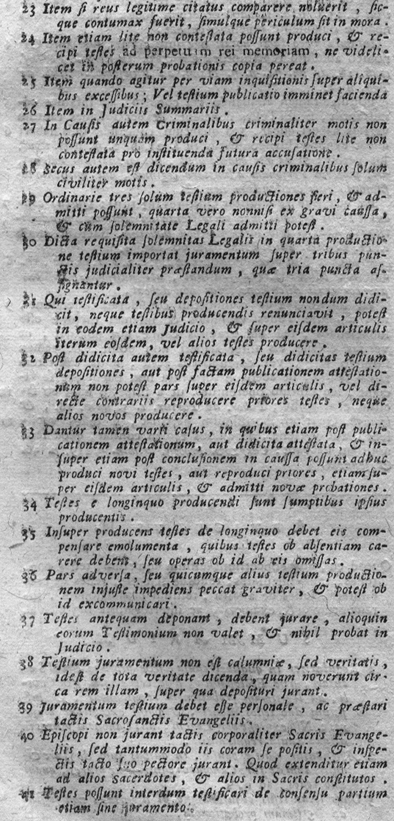 23 Item si reus legitime citatus comparere noluerit, sic-
que contumax fuerit, simulque periculum sit in mora.
24 Item etiam lite non contestata possunt produci, & re-
cipi testes ad perpetuam rei memoriam, ne videli-
cet in posterum probationis copia pereat.
25 Item quando agitur per viam inquisitionis super aliqui-
bus excessibus; Vel testium publicatio imminet facienda
26 Item in Judiciis Summariis.
27 In Causis autem Criminalibus criminaliter motis non
possunt unquam produci, & recipi testes lite non
contestata pro instituenda futura accusatione.
28 Secus autem est dicendum in causis criminalibus solum
civiliter motis.
29 Ordinarie tres solum testium productiones fieri, & ad-
mitti possunt, quarta vero nonnisi ex gravi caussa,
& cum solemnitate Legali admitti potest.
30 Dicta requisita solemnitas Legalis in quarta productio-
ne testium importat juramentum super tribus pun-
ctis judicialiter præstandum, quæ tria puncta as-
signantur.
31 Qui testificata, seu depositiones testium nondum didi-
cit, neque testibus producendis renunciavit, potest
in eodem etiam Judicio, & super eisdem articulis
iterum eosdem, vel alios testes producere.
32 Post didicita autem testificata, seu didicitas testium
depositiones, aut post factam publicationem attestatio-
num non potest pars super eisdem articulis, vel di-
recte contrariis reproducere priores testes, neque
alios novos producere.
33 Dantur tamen varii casus, in quibus etiam post publi-
cationem attestationum, aut didicita attestata, & in-
super etiam post conclusionem in caussa possunt adhuc
produci novi testes, aut reproduci priores, etiam su-
per eisdem articulis, & admitti novæ probationes.
34 Testes e longinquo producendi sunt sumptibus ipsius
producentis.
35 Insuper producens testes de longinquo debet eis com-
pensare emolumenta, quibus testes ob absentiam ca-
rere debent, seu operas ob id ab eis omissas.
36 Pars adversa, seu quicumque alius testium productio-
nem injuste impediens peccat graviter, & potest ob
id excommunicari.
37 Testes antequam deponant, debent jurare, alioquin
eorum Testimonium non valet, & nihil probat in
Judicio.
38 Testium juramentum non est calumniæ, sed veritatis,
idest de tota veritate dicenda, quam noverunt cir-
ca rem illam, super qua deposituri jurant.
39 Juramentum testium debet esse personale, ac præstari
tactis Sacrosanctis Evangeliis.
40 Episcopi non jurant tactis corporaliter Sacris Evange-
liis, sed tantummodo iis coram se positis, & inspe-
ctis tacto suo pectore jurant. Quod extenditur etiam
ad alios sacerdotes, & alios in Sacris constitutos.
41 Testes possunt interdum testificari de consensu partium
etiam sine juramento.